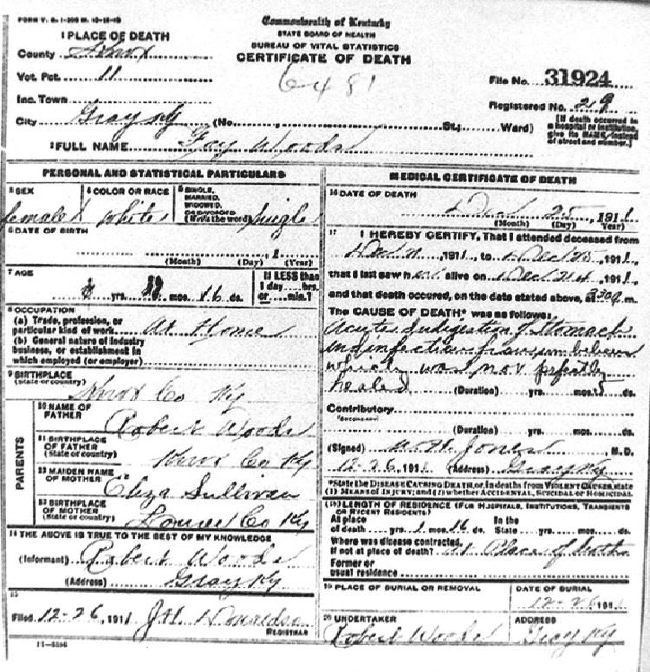 FORM V. S. 1-200 M. 10-18-10
Commonwealth of Kentucky
STATE BOARD OF HEALTH
BUREAU OF VITAL STATISTICS
CERTIFICATE OF DEATH
1 PLACE OF DEATH
County Knox
Vot. Pct. 11
Inc. Town
City Gray Ky (No. St.; Ward)
6481
File No. 31924
Registered No. 29
[If death occurred in a hospital or institution, give its NAME, instead of street and number.]
2 FULL NAME Fay Woods
PERSONAL AND STATISTICAL PARTICULARS
3 SEX
female
4 COLOR OR RACE
white
5 SINGLE, MARRIED, WIDOWED, OR DIVORCED (Write the word)
single
6 DATE OF BIRTH
, 1
(Month) (Day) (Year)
7 AGE
yrs. mos. 16 ds.
If LESS than 1 day ... hrs. or ... min.?
8 OCCUPATION
(a) Trade, profession, or particular kind of work. At Home
(b) General nature of industry business, or establishment in which employed (or employer)
9 BIRTHPLACE
(State or country)
Knox Co Ky
PARENTS
10 NAME OF FATHER
Robert Woods
11 BIRTHPLACE OF FATHER (State or country)
Knox Co Ky
12 MAIDEN NAME OF MOTHER
Eliza Sullivan
13 BIRTHPLACE OF MOTHER (State or country)
Laurel Co Ky
14 THE ABOVE IS TRUE TO THE BEST OF MY KNOWLEDGE
(Informant) Robert Woods
(Address) Gray Ky
15
Filed 12-26, 1911 J.H. Donaldson
REGISTRAR
11-3396
MEDICAL CERTIFICATE OF DEATH
16 DATE OF DEATH
Dec 25 1911
(Month) (Day) (Year)
17 I HEREBY CERTIFY, That I attended deceased from
Dec 1911, to Dec 25, 1911,
that I last saw her alive on Dec 24, 1911
and that death occured, on the date stated above, at m.
The CAUSE OF DEATH* was as follows:
Acute Indigestion of Stomach
and infection from
which was not perfectly
healed (Duration) yrs. mos. 5 ds.
Contributory
(SECONDARY)
(Duration) yrs. mos. ds.
(Signed) W.H. Jones M. D.
12-26, 1911 (Address) Gray Ky
*State the DISEASE CAUSING DEATH, or, in deaths from VIOLENT CAUSES, state (1) MEANS OF INJURY; and (2) whether ACCIDENTAL, SUICIDAL or HOMICIDAL
18 LENGTH OF RESIDENCE (FOR HOSPITALS, INSTITUTIONS, TRANSIENTS OR RECENT RESIDENTS)
At place of death yrs. 1 mos. 16 ds. In the State yrs. mos. ds.
Where was disease contracted, If not at place of death? at Place of Death
Former or usual residence
19 PLACE OF BURIAL OR REMOVAL
DATE OF BURIAL
12-26, 1911
20 UNDERTAKER
Robert Woods
ADDRESS
Gray Ky